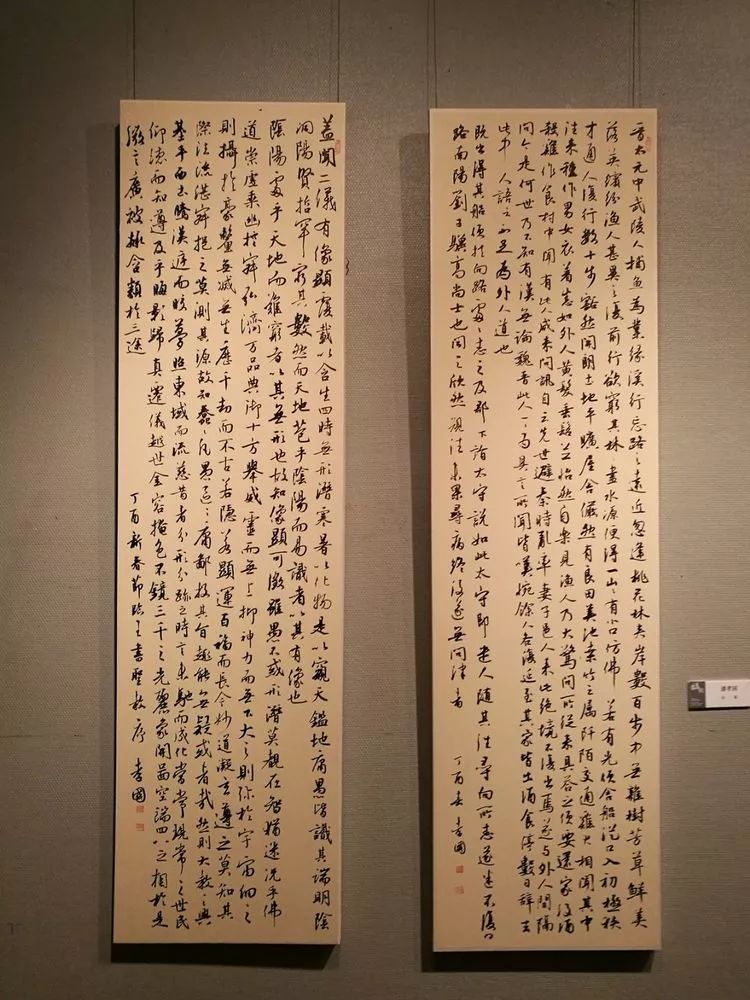 晋太元中武陵人捕鱼為業缘溪行忘路之遠近忽逢桃花林夹岸數百步中無雜樹芳草鮮美
落英繽纷渔人甚異之復前行欲窮其林林盡水源便得一山山有小口仿佛若有光便舍船從口入初極狭
才通人復行數十步豁然開朗土地平曠屋舍儼然有良田美池桑竹之属阡陌交通雞犬相聞其中
往来種作男女衣著悉如外人黄髮垂髫並怡然自樂見渔人乃大驚問所從来具答之便要還家設酒
殺雞作食村中聞有此人咸来問訊自云先世避秦時亂率妻子邑人来此绝境不復出焉遂与外人間隔
問今是何世乃不知有漢無論魏晋此人一一為具言所聞皆嘆惋餘人各復延至其家皆出酒食停數日辭去
此中人語云不足為外人道也
既出得其船便扶向路處處志之及郡下詣太守説如此太守即遣人随其往尋向所志遂迷不復得
路南陽劉子驥高尚士也聞之欣然規往未果尋病终後遂無問津者 丁酉春 孝國
盖聞二儀有像顯覆載以含生四時無形潜寒暑以化物是以窺天鑑地庸愚皆識其端明陰
洞陽賢哲罕窮其數然而天地苞乎陰陽而易識者以其有像也
陰陽處乎天地而難窮者以其無形也故知像顯可徵雖愚不惑形潜莫覩在智猶迷况乎佛
道崇虚乘幽控寂弘濟萬品典御十方舉威靈而無上抑神力而無下大之則弥於宇宙细之
則攝於豪釐無滅無生歷千劫而不古若隐若顯運百福而長今妙道凝玄遵之莫知其
際法流湛寂挹之莫測其源故知蠢蠢凡愚區區庸鄙投其旨趣能無疑惑者哉然則大教之興
基乎西土騰漢庭而皎夢照東域而流慈昔者分形分跡之時言未馳而成化當常現常之世民
仰德而知遵及乎晦影歸真遷儀越世金容掩色不鏡三千之光麗象開圖空端四八之相於是
微言廣被拯含類於三途
丁酉新春節臨王書聖教序 孝國